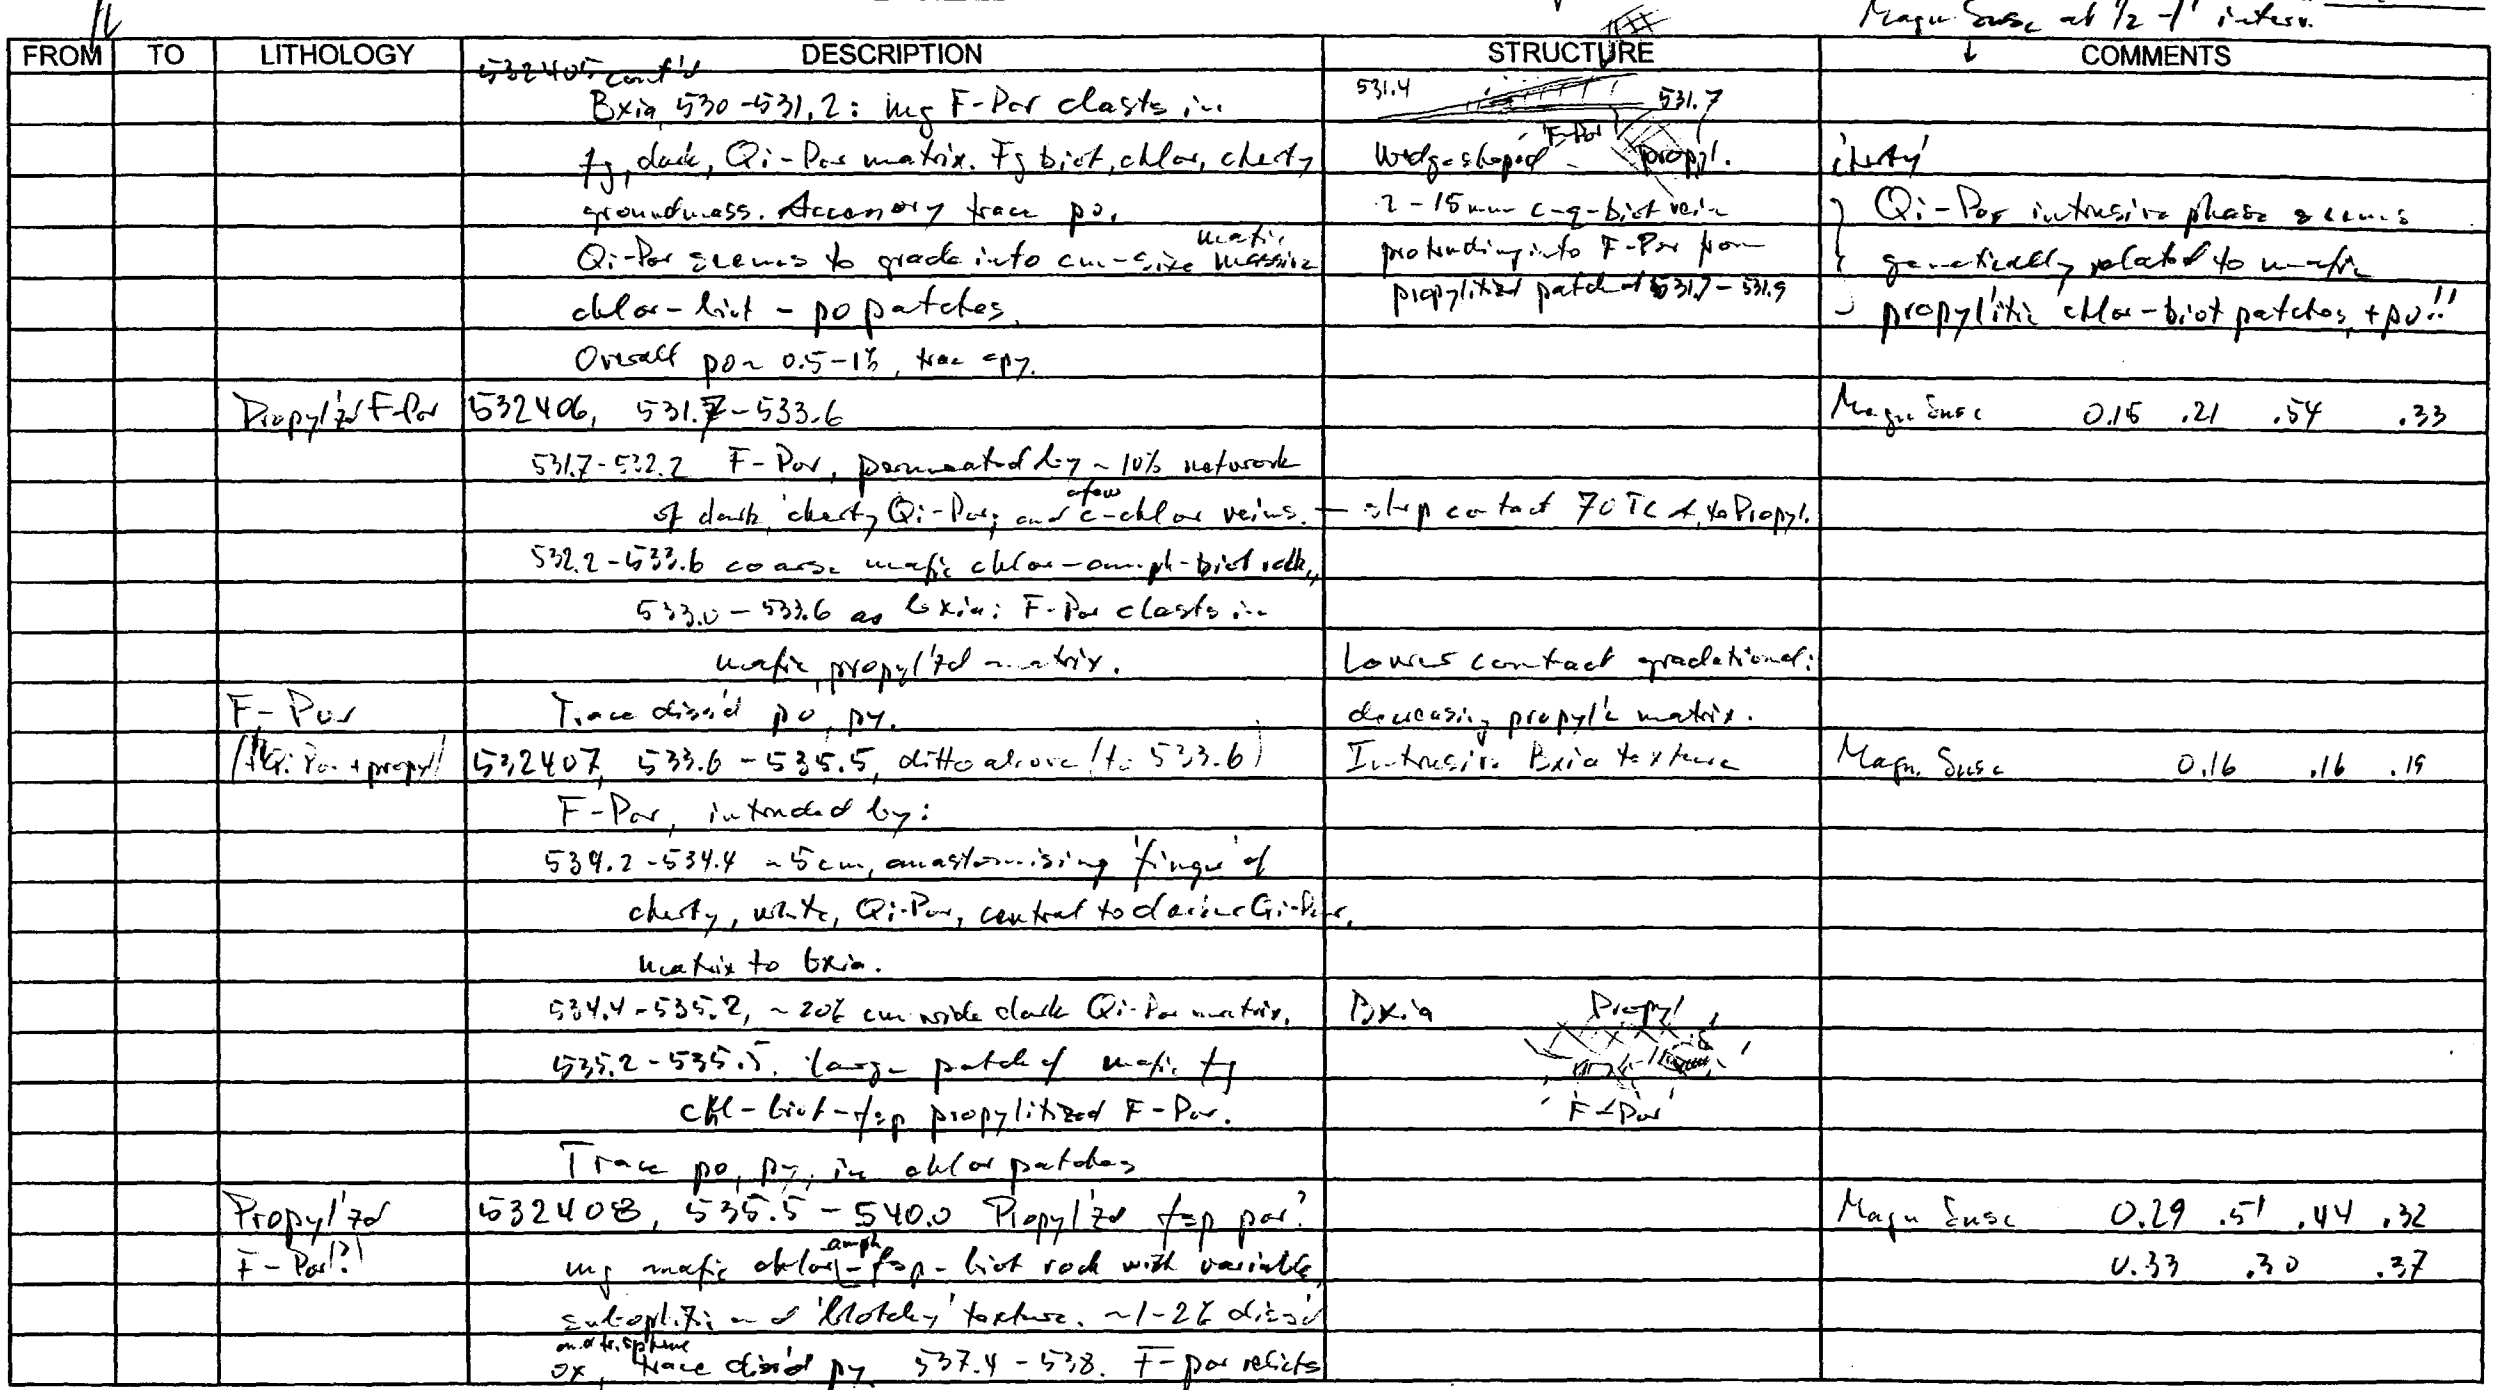 Magn Susc at 1/2 - 1' interv.
FROM TO LITHOLOGY DESCRIPTION STRUCTURE ↓ COMMENTS
532405 cont'd
Bxia 530-531.2: mg F-Por clasts in
531.4 531.7
fg, dark, Qi-Por matrix. Fg biot, chlor, cherty
Wedge shaped F-Por propyl.
'cherty'
groundmass. Accessory trace po.
2-15mm c-q-biot vein
Qi-Por intrusive phase seems
Qi-Por seems to grade into cm-size mafic massive
protruding into F-Por from
genetically related to mafic
chlor-biot-po patches.
propylitized patch at 531.7-531.9
propylitic chlor-biot patches, +po!!
Overall po ~ 0.5-1%, trace cpy.
Propyl'zd F-Por 532406, 531.7-533.6 Magn Susc 0.15 .21 .54 .33
531.7-532.2 F-Por, permeated by ~10% network
of dark cherty Qi-Por; and a few c-chlor veins. - sharp contact 70 TCA, to Propyl.
532.2-533.6 coarse mafic chlor-amph-biot rock,
533.0-533.6 as bxia: F-Por clasts in
mafic, propyl'zd matrix. Lower contact gradational:
F-Por Trace diss'd po, py. decreasing propyl'c matrix.
(+Qi-Por + propyl) 532407, 533.6-535.5, ditto above (to 533.6) Intrusive Bxia texture Magn. Susc 0.16 .16 .19
F-Por, intruded by:
534.2-534.4 ~5cm, anastomising 'finger' of
cherty, white, Qi-Por, central to darker Qi-Por,
matrix to bxia.
534.4-535.2, ~20% cm-wide dark Qi-Por matrix. Bxia Propyl
535.2-535.5. Large patch of mafic fg
chl-biot-fsp propylitized F-Por. F-Por
Trace po, py, in chlor patches
Propyl'zd 532408, 535.5-540.0 Propyl'zd fsp por? Magn Susc 0.29 .51 .44 .32
F-Por(?) mg mafic chlor-amph-fsp-biot rock with variable, 0.33 .30 .37
subophitic and 'blotchy' texture. ~1-2% diss'd
ox, and tr. sphene trace diss'd py 537.4-538. F-por relicts